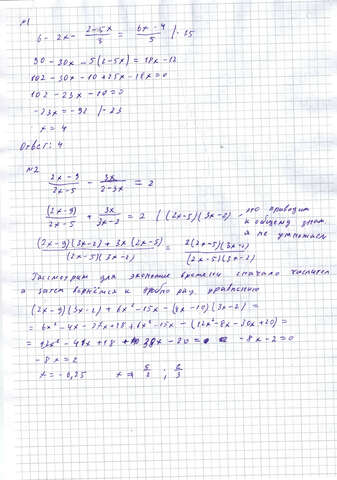 №1
6 - 2x - (2-5x)/3 = (6x-4)/5 | ·15
90 - 30x - 5(2-5x) = 18x - 12
102 - 30x - 10 + 25x - 18x = 0
102 - 23x - 10 = 0
-23x = -92 | -23
x = 4
Ответ: 4
№2
(2x-9)/(2x-5) - 3x/(2-3x) = 2
(2x-9)/(2x-5) + 3x/(3x-2) = 2 | (2x-5)(3x-2), это приводит
к общему знам.
я не умножаем
((2x-9)(3x-2) + 3x(2x-5))/((2x-5)(3x-2)) = 2(2x-5)(3x-2)/((2x-5)(3x-2))
Рассмотрим для экономие времени сначало числител
а затем вернёмся к уравнению
(2x-9)(3x-2) + 6x² - 15x - (4x-10)(3x-2) =
= 6x² - 4x - 27x + 18 + 6x² - 15x - (12x² - 8x - 30x + 20) =
+ 18 + 38x - 20 = -8x - 2 = 0
-8x = 2
x = -0,25 x ≠ 5/2 ; 2/3